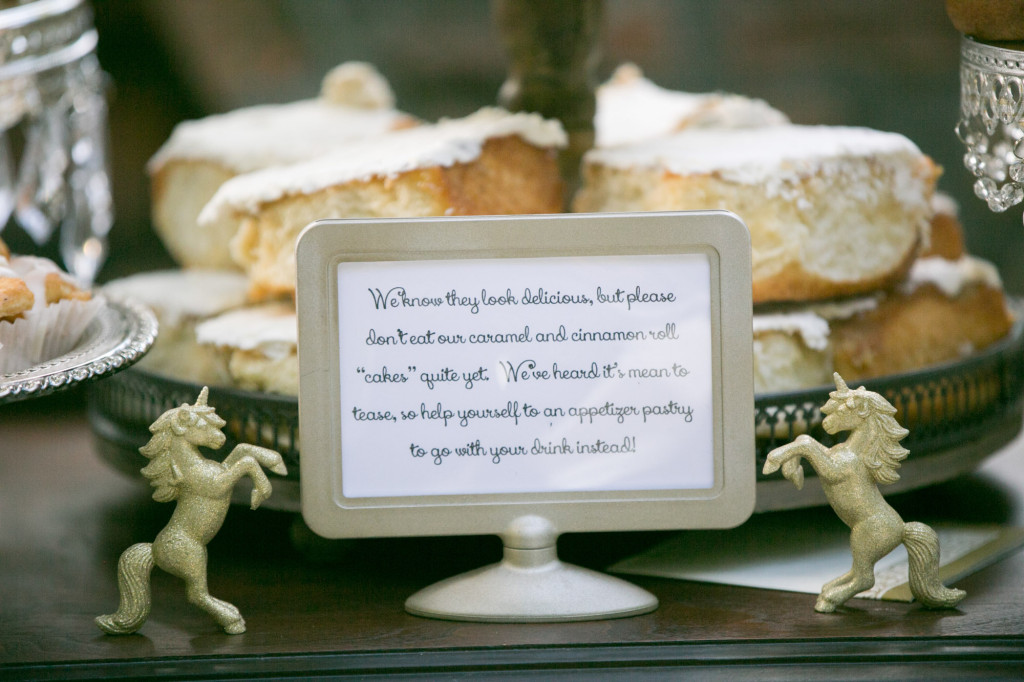 We know they look delicious, but please
don't eat our caramel and cinnamon roll
"cakes" quite yet. We've heard it's mean to
tease, so help yourself to an appetizer pastry
to go with your drink instead!